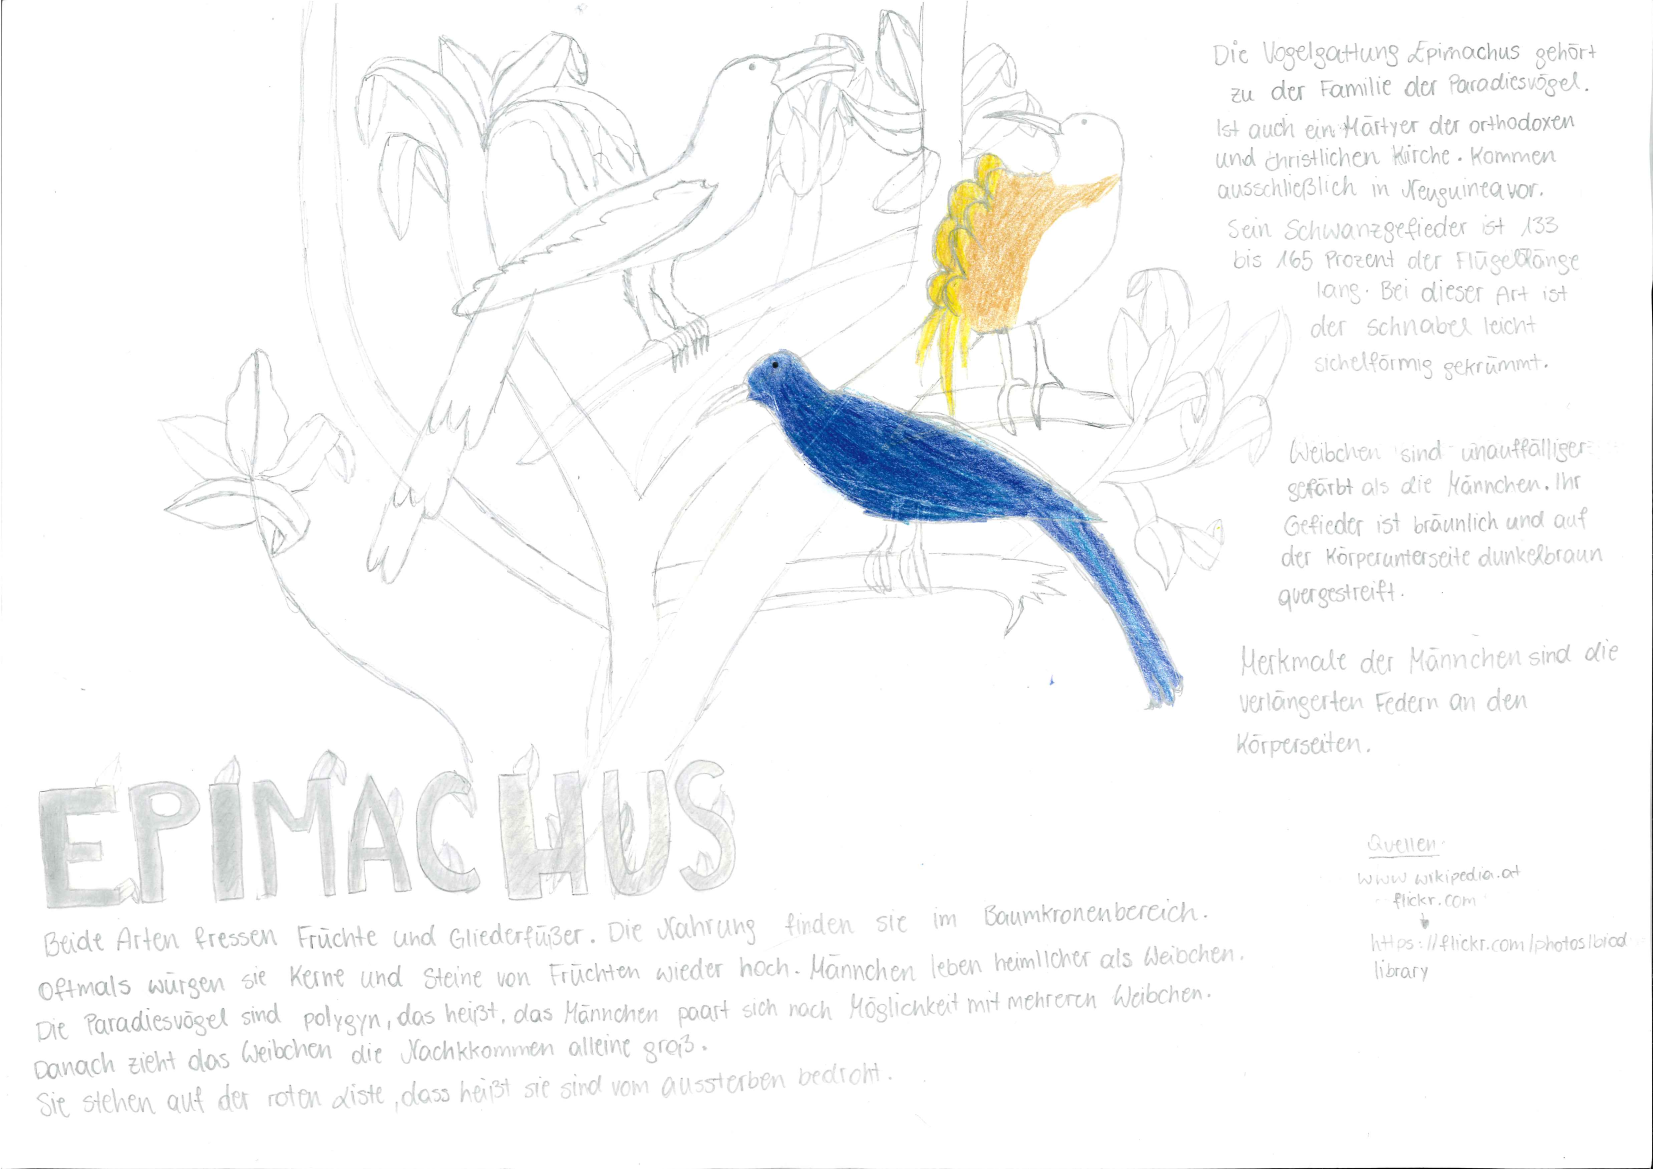 Die Vogelgattung Epimachus gehört
zu der Familie der Paradiesvögel.
Ist auch ein Märtyer der orthodoxen
und christlichen Kirche. Kommen
ausschließlich in Neuguinea vor.
Sein Schwanzgefieder ist 133
bis 165 Prozent der Flügellänge
lang. Bei dieser Art ist
der Schnabel leicht
sichelförmig gekrümmt.
Weibchen sind unauffälliger
gefärbt als die Männchen. Ihr
Gefieder ist bräunlich und auf
der Körperunterseite dunkelbraun
quergestreift.
Merkmale der Männchen sind die
verlängerten Federn an den
Körperseiten.
EPIMACHUS
Beide Arten fressen Früchte und Gliederfüßer. Die Nahrung finden sie im Baumkronenbereich.
Oftmals würgen sie Kerne und Steine von Früchten wieder hoch. Männchen leben heimlicher als Weibchen.
Die Paradiesvögel sind polygyn, das heißt, das Männchen paart sich nach Möglichkeit mit mehreren Weibchen.
Danach zieht das Weibchen die Nachkkommen alleine groß.
Sie stehen auf der roten Liste, dass heißt sie sind vom aussterben bedroht.
Quellen:
www wikipedia.at
flickr.com
https://flickr.com/photos/biod
library